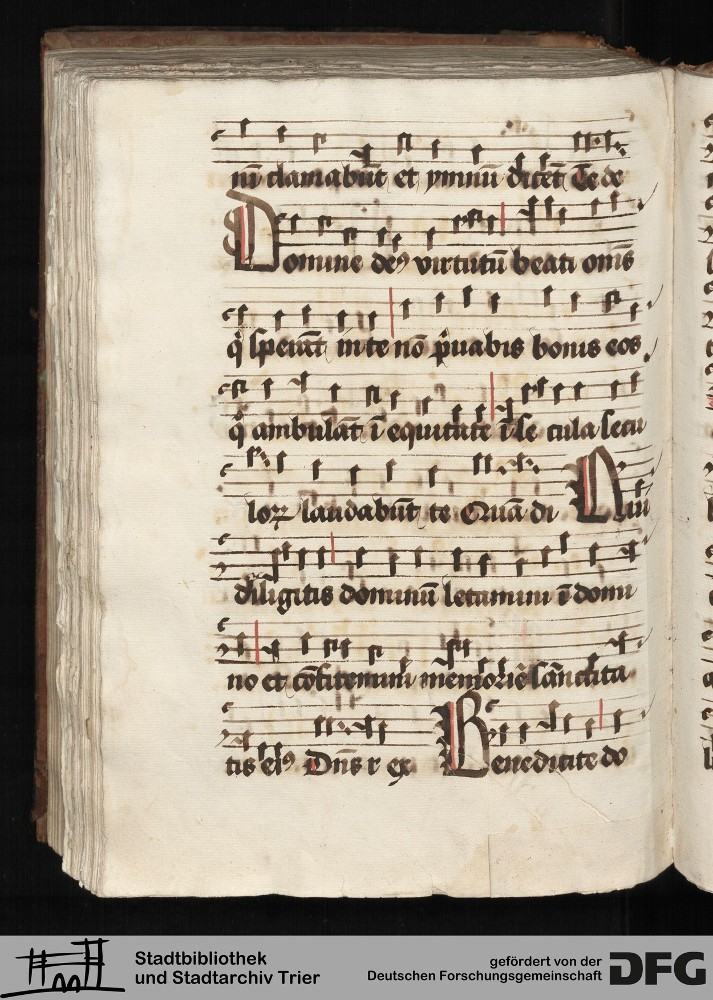 nū clamabūt et ymnū dicēt Te de
Domine deꝯ virtutū beati om̄s
q̇ sperāt in te nō p̱uabis bonis eos
q̇ ambulāt ī equitate ī se cula secu
loꝝ laudabūt te Quā di Qui
diligitis dominū letamini ī domi
no et cōfitemini memorie sanctita
tis eiꝯ Dn̄s r ex Benedicite do
Stadtbibliothek
und Stadtarchiv Trier
gefördert von der
Deutschen Forschungsgemeinschaft
DFG